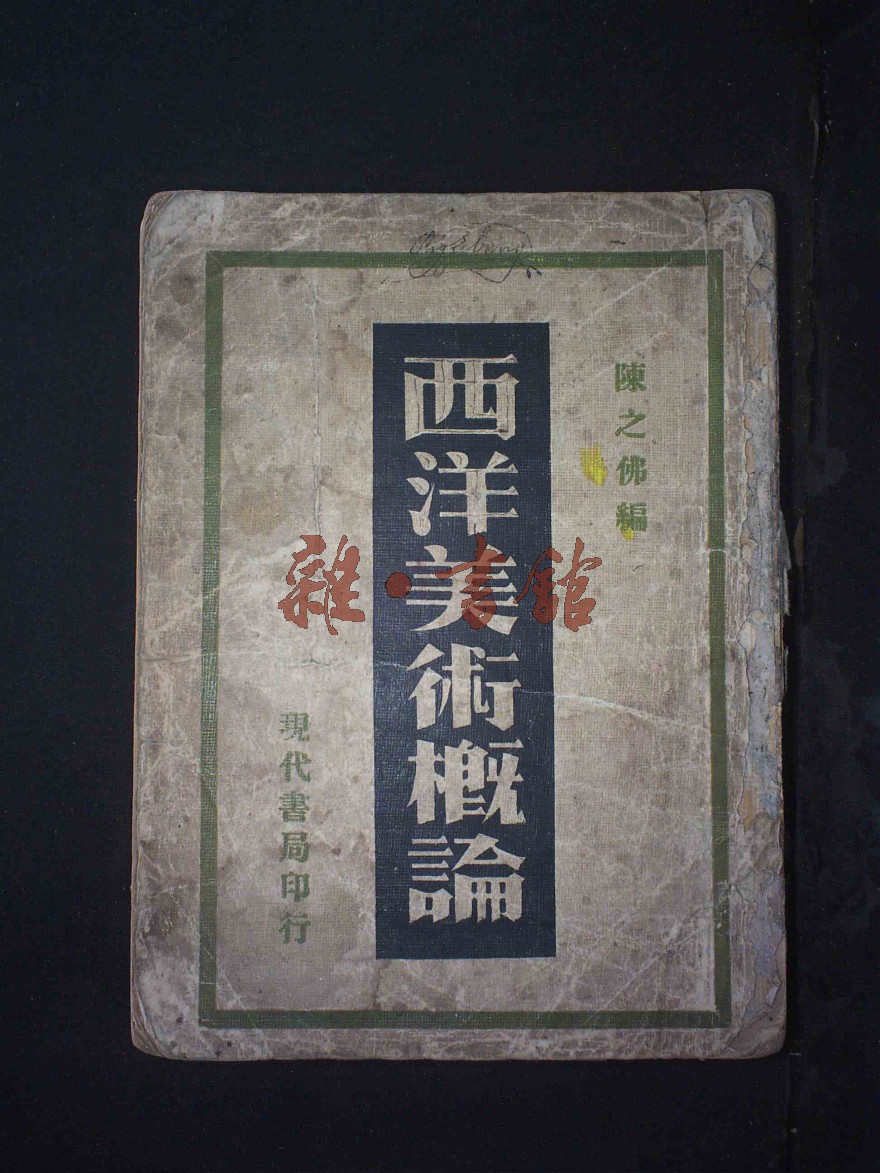 陳之佛編
西洋美術概論
現代書局印行
雜·書館